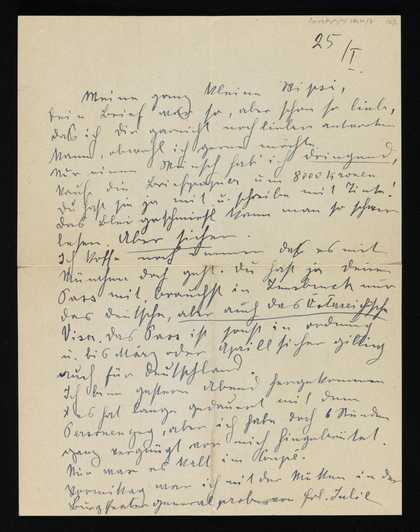 25/I.
Meine ganz kleine Wipsi,
dein Brief war so, aber schon so lieb,
dass ich dir garnicht noch lieber antworten
kann, obwohl ich gerne möchte.
Nur einen Wunsch hab ich dringend,
kaufe dir Briefpapier um 8000 Kronen
Du hast ja ja mit u. schreibe mit Tinte!
Das Bleigeschmiersl kann man so schwer
lesen. Aber sicher
Ich hoffe noch immer dass es mit
München doch geht. Du hast ja deinen
Pass mit, brauchst in Innsbruck nur
das deutsche, aber auch das Österreichische
Visa. Das Pass ist sonst in Ordnung
u. bis März oder April sicher gültig
auch für Deutschland.
Ich bin gestern Abend heimgekommen
es hat lange gedauert mit dem
Personenzug, aber ich habe doch 6 Stunden
ganz vergnügt vor mich hingebrütet.
Nur war es kalt im Coupé.
Vormittag war ich mit der Mutter in der
Burgtheatergeneralprobe von Frl. Julie